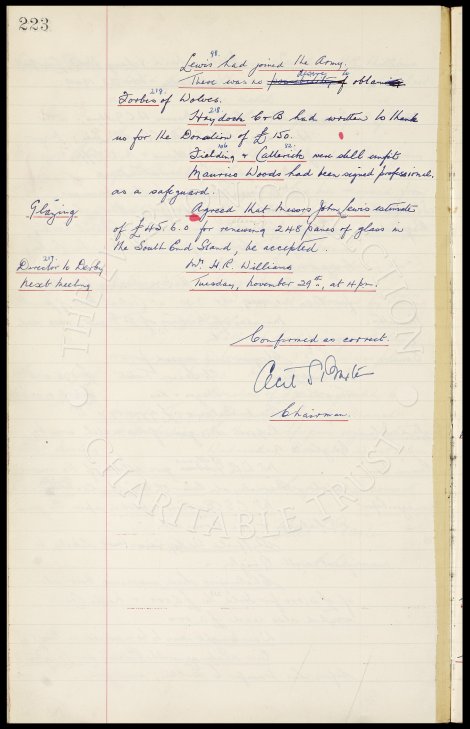 223
98.
Lewis had joined the Army.
desire to
There was no possibility of obtain
219.
Forbes of Wolves.
218.
Haydock C&B had written to thank
us for the Donation of £150.
106 82.
Fielding & Catterick were still unfit.
Maurice Woods had been signed professional
as a safeguard.
Glazing
Agreed that Messrs John Lewis estimate
of £45.6.0 for renewing 248 panes of glass in
the South End Stand, be accepted.
217.
Director to Derby
Mr. H.R. Williams
Next Meeting
Tuesday, November 29th, at 4pm.
Confirmed as correct.
Chairman.
THE COLLECTION
CHARITABLE TRUST